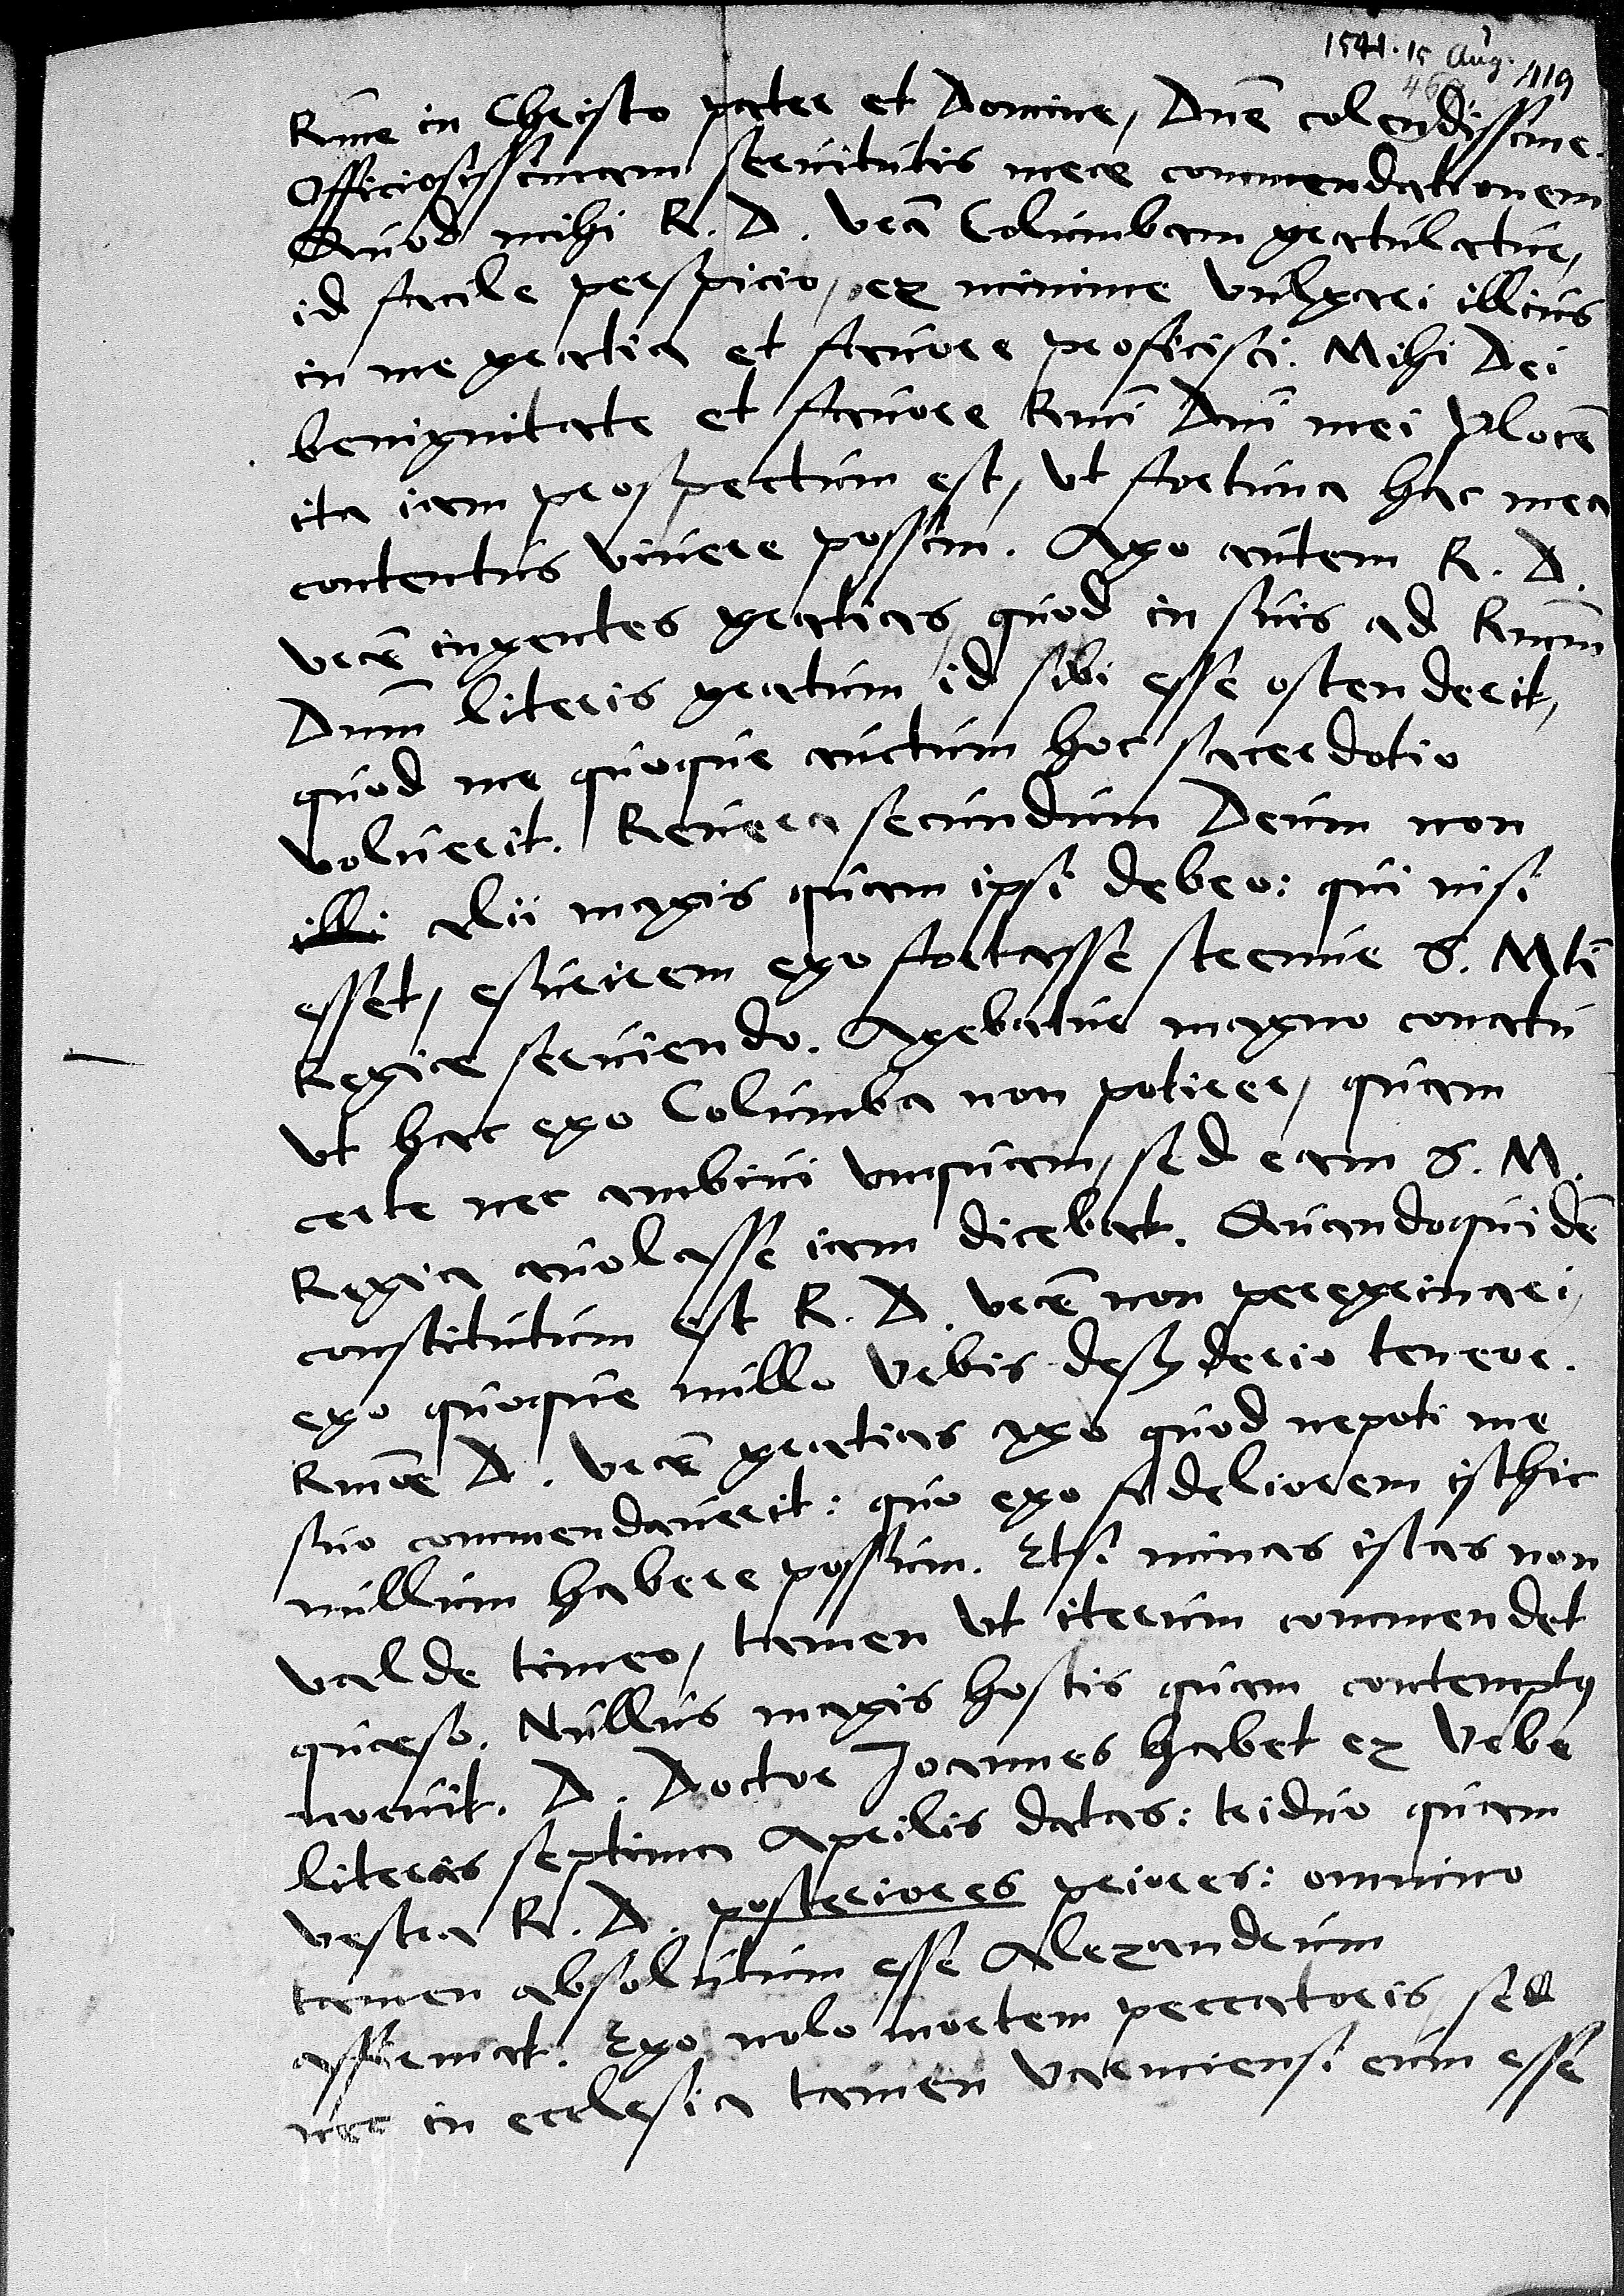 1541. 15 Aug. 119
460
Rme in Christo pater et Domine, Dne colendissime.
Officiosissimam servitutis meae commendationem
Quod mihi R. D. vra Columbam gratulatur,
id facile perspicio, ex minime vulgari illius
in me gratia et favore proficisci. Mihi Dei
benignitate et favore Rmi Dni mei Plocen
ita iam prospectum est, ut fortuna hac mea
contentus vivere possim. Ago autem R. D.
vrae ingentes gratias, quod in suis ad Rmum
Dnum literis gratum id sibi esse ostenderit,
quod me quoque auctum hoc sacerdotio
voluerit. Revera secundum Deum non
illi alii magis quam ipsi debeo: qui nisi
esset, esurirem ego fortasse strenue S. Mti
Regiae serviendo. Agebatur magno conatu
ut hac ego Columba non potirer, quam
certe nec ambivi unquam, sed eam S. M.
Regia avolasse iam dicebat. Quandoquidem
constitutum est R. D. vrae non peregrinari,
ego quoque nullo Urbis desyderio teneor.
Rmae D. vrae gratias ago quod nepoti me
suo commendaverit: quo ego fideliorem isthic
nullum habere possum. Etsi minas istas non
valde timeo, tamen ut iterum commendet
quaeso. Nullus magis hostis quam contemptus
nocuit. D. Doctor Joannes habet ex Urbe
literas septima Aprilis datas: triduo quam
vestra R. D. posteriores priores: omnino
tamen absolutum esse Alexandrum
affirmat. Ego nolo mortem peccatoris, sed
nec in ecclesia tamen Varmiensi eum esse